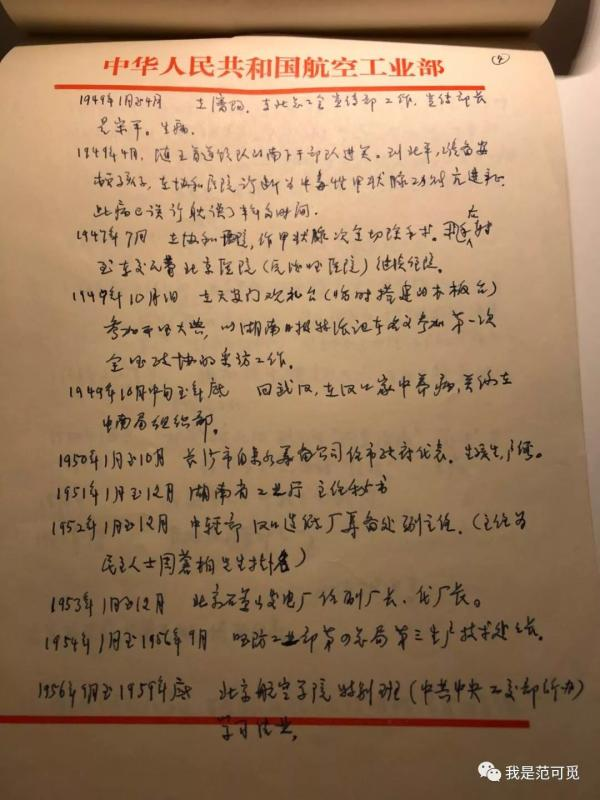 ④
中华人民共和国航空工业部
1949年1月至4月 在沈阳,东北总工会宣传部工作,宣传部长
吴宗平。生病。
1949年4月,随王首道领队的南下干部队进关。到北平,
在协和医院诊断为中毒性甲状腺功能亢进症。
此病已误诊耽误了时间。
1949年7月 在协和医院,作甲状腺次全切除手术。
至东交民巷北京医院(原德国医院)继续住院。
1949年10月1日 在天安门观礼台(临时搭建的木板台)
参加开国大典,以湖南日报特派记者名义参加第一次
全国政协的采访工作。
1949年10月中旬至年底 回武汉,在汉口家中养病,关系在
中南局组织部。
1950年1月至10月 长沙市自来水筹备公司任市政府代表。
1951年1月至12月 湖南省工业厅 主任秘书
1952年1月至12月 中轻部 汉口造纸厂筹备处副主任。(主任为
民主人士周苍柏先生挂名)
1953年1月至12月 北京石景山发电厂任副厂长、代厂长。
1954年1月至1956年9月 国防工业部第四总局第三生产技术处处长。
1956年9月至1959年底 北京航空学院特别班(中共中央工交部所办)
学习结业。
我是范可觅